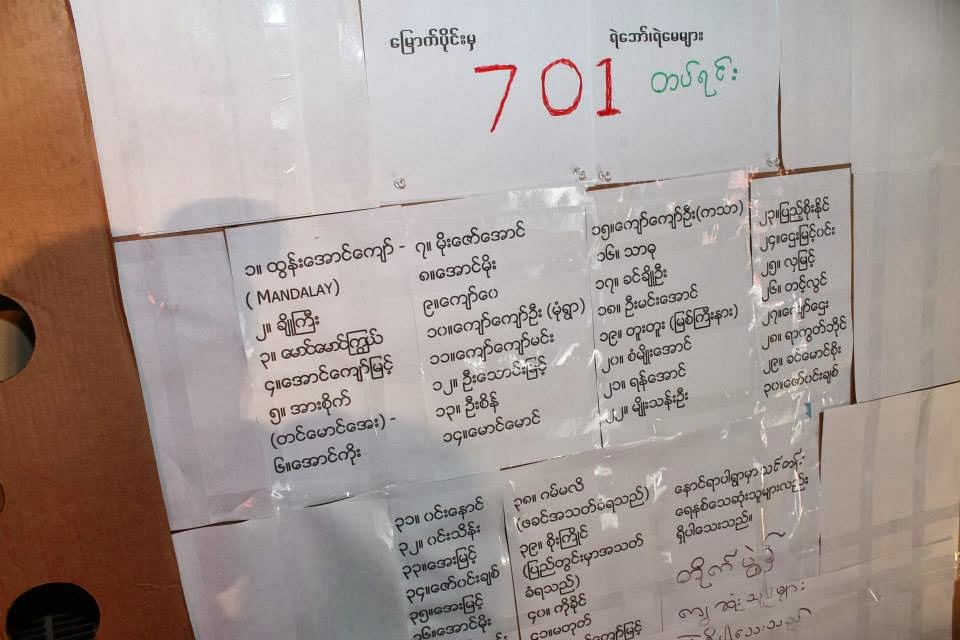 မြောက်ပိုင်းမှ ရဲဘော်၊ရဲမေများ
701 တပ်ရင်း
၁။ ထွန်းအောင်ကျော် -
( MANDALAY)
၂။ ချိုကြီး
၃။ မောင်မောင်ကြွယ်
၄။အောင်ကျော်မြင့်
၅။ အားစိုက်
(တင်မောင်အေး) -
၆။အောင်ကိုး
၇။ မိုးဇော်အောင်
၈။အောင်မိုး
၉။ကျော်ဝေ
၁၀။ကျော်ကျော်ဦး (မုံရွာ)
၁၁။ကျော်ကျော်မင်း
၁၂။ ဦးသောင်းမြင့်
၁၃။ ဦးစိန်
၁၄။မောင်မောင်
၁၅။ကျော်ကျော်ဦး(ကသာ)
၁၆။ သာဓု
၁၇။ ခင်ချိုဦး
၁၈။ ဦးမင်းအောင်
၁၉။ တူးတူး (မြစ်ကြီးနား)
၂၀။ စံမျိုးအောင်
၂၁။ ရန်အောင်
၂၂။ မျိုးသန်းဦး
၂၃။ပြည့်စိုးနိုင်
၂၄။ဌေးမြင့်ဝင်း
၂၅။ လှမြင့်
၂၆။ တင့်လွင်
၂၇။ကျော်ဌေး
၂၈။ ရာကွတ်ဘိုင်
၂၉။ ခင်မောင်စိုး
၃၀။ဇော်ဝင်းချစ်
၃၁။ ဝင်းနောင်
၃၂။ ဝင်းသိန်း
၃၃။အေးမြင့်
၃၄။ဇော်ဝင်းချစ်
၃၅။အေးမြင့်
၃၆။အောင်မိုး
၃၈။ ဂမ်မလိ
(ဖခင်အသတ်ခံရသည်)
၃၉။ စိုးကြိုင်
(ပြည်တွင်းမှာအသတ်
ခံရသည်)
၄၀။ ကိုခိုင်
၄၁။မတုတ်
ကျော်မြင့်
နောင်ရာပါရွာမှာ သင်တန်း
ရေနစ်သေဆုံးသူများလည်း
ရှိပါသေးသည်။
တိုက်ပွဲမှ
ကျဆုံးသူများ